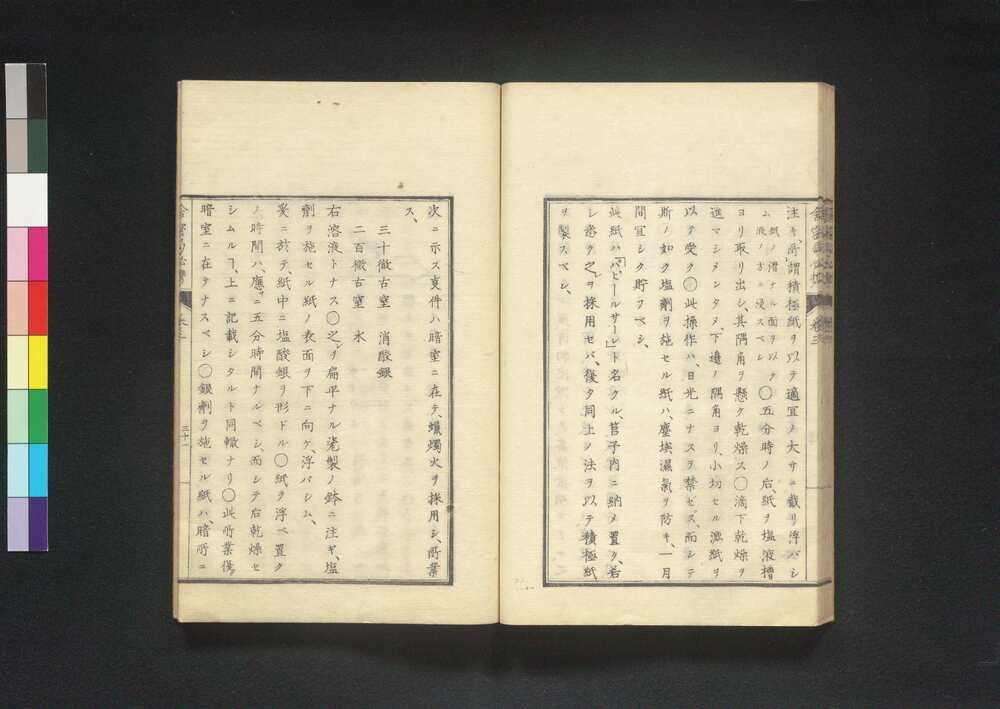 注キ、所謂積極紙ヲ以テ適宜ノ大サニ截リ浮バシ
ム紙ノ滑ナル面ヲ以テ液ノ方ニ浸スベシ〇五分時ノ后、紙ヲ塩液槽
ヨリ取リ出シ、其隅角ヲ懸ケ乾燥ス〇滴下乾燥ヲ
進マシメンタメ、下邊ノ隅角ヨリ、小切セル濾紙ヲ
以テ受ク〇此操作ハ、日光ニナスヲ禁ゼズ、而シテ
斯ノ如ク塩劑ヲ施セル紙ハ、塵埃濕氣ヲ防キ、一月
間宜シク貯フベシ、
此紙ハ「パピールサーレ」ト名クル、筥子内ニ納メ置ク、若
シ悉ク之ヲ採用セバ、復タ同上ノ法ヲ以テ積極紙
ヲ製スベシ、
卷三
次ニ示ス支件ハ暗室ニ在テ、蝋燭火ヲ採用シ、所業
ス、
三十微古室 消酸銀
二百微古室 水
右溶液トナス〇之ヲ扁平ナル瓷製ノ鉢ニ注ギ、塩
劑ヲ施セル紙ノ表面ヲ下ニ向ケ、浮バシム、
爰ニ於テ、紙中ニ塩酸銀ヲ形ドル〇紙ヲ浮ベ置ク
ノ時間ハ、應ニ五分時間ナルベシ、而シテ后乾燥セ
シムルヿ、上ニ記載シタルト同轍ナリ〇此所業僅
暗室ニ在テナスベシ〇銀劑ヲ施セル紙ハ、暗所ニ
三十一